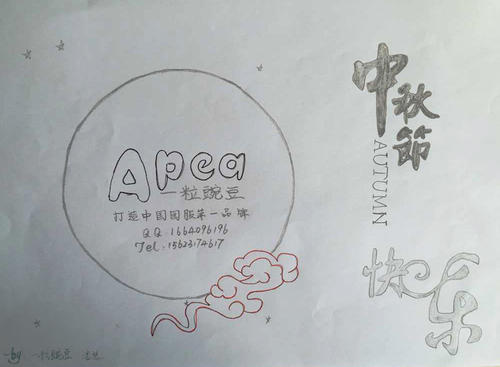 Apea
一粒豌豆
打造中国国服第一品牌
QQ.1664096196
Tel.15623174617
中秋節
AUTUMN
快乐
-by 一粒豌豆